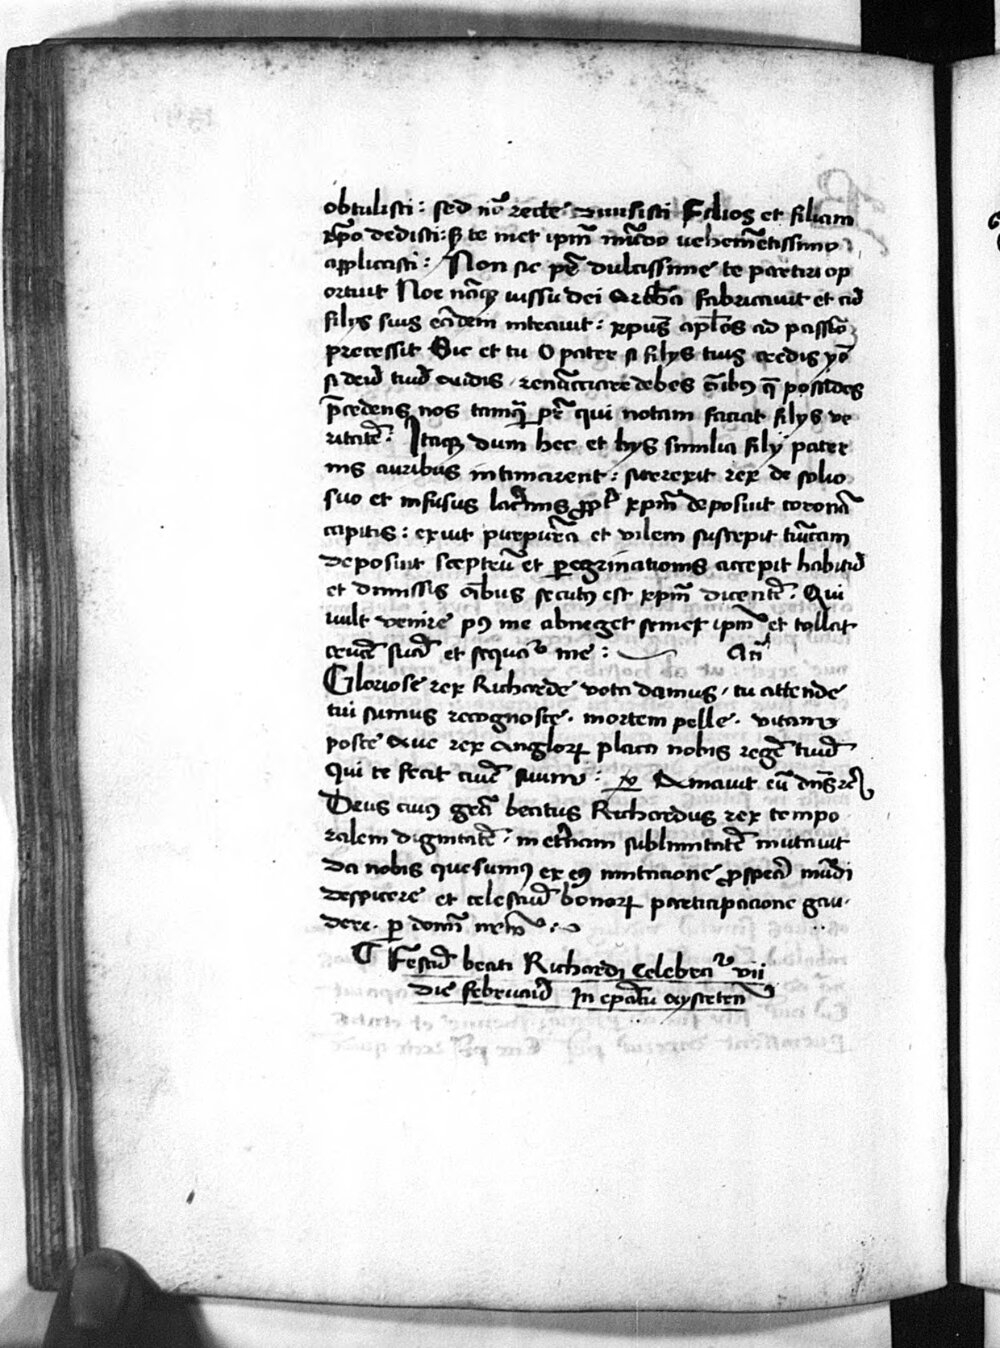 obtulisti : sed nō recte diuisisti Filios et filiam
xp̄o dedisti : s; te met ipm̄ mūdo vehemētissimo
applicasti : Non sic pr̄ dulcissime te partiri op
ortuit Noe nāq; iussu dei Archā fabricauit et cū
filijs suis eādem intrauit : xpūs apl̄os ad passiōēȝ
precessit Sic et tu O pater si filijs tuis credis ymō
si deū tuū audis , renūcciare debes oībus q̄ possides
p̄cedens nos tamq̄ pr̄ qui notam faciat filijs ve
ritatē : Itaq; dum hec et hijs similia filij pater
nis auribus intimarent : surrexit rex de solio
suo et infusus lacrimis ꝓpt̄ xpm̄ deposuit coronā
capitis : exuit purpurā et vilem suscepit tūicam
deposuit sceptrū et peregrinationis accepit habitū
et dimissis oībus secutus est xpm̄ dicentē : Qui
vult venire pꝰ me abneget semet ipm̄ et tollat
crucē suā et sequar me : An̄
Gloriose rex Richarde vota damus , tu attende
tui sumus recognosce . mortem pelle . vitam
posce Aue rex Anglorꝝ placa nobis regē tuū
Qui te fecit ciuē suum : ꝟ Amauit eū dn̄s rꝫ
Deus cuius grā beatus Richardus rex tempo
ralem dignitatē : in eternam sublimitatē mutauit
Da nobis quesumus ex eius imitacione ꝓspera mūdi
despicere et celestiū bonorꝝ participacione gau
dere . per domī nrm̄ :
Festū beati Richardi celebratur vii
die februarii In ep̄atu Aysteten